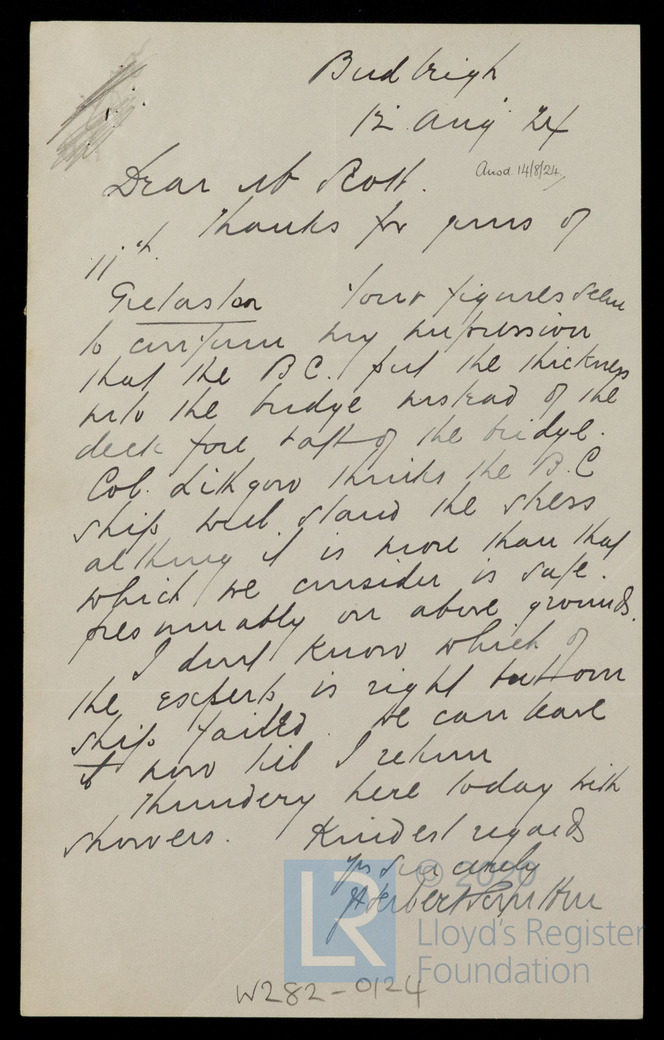 Budleigh
12 Aug 24
Ansd. 14/8/24
Dear Mr Scott.
Thanks for yours of
11th.
Your figures seem
to confirm my impression
that the B.C. put the thickness
into the bridge instead of the
deck fore & aft of the bridge.
Col. Lithgow thinks the B.C
ship will stand the stress
although it is more than that
which we consider is safe.
presumably on above grounds.
I dont know which of
the experts is right but
ship failed. We can leave
it now till I return
Thundery here today with
showers. Kindest regards
yrs sincerely
Herbert
W282-0124
LR
© 2020
Lloyd's Register
Foundation